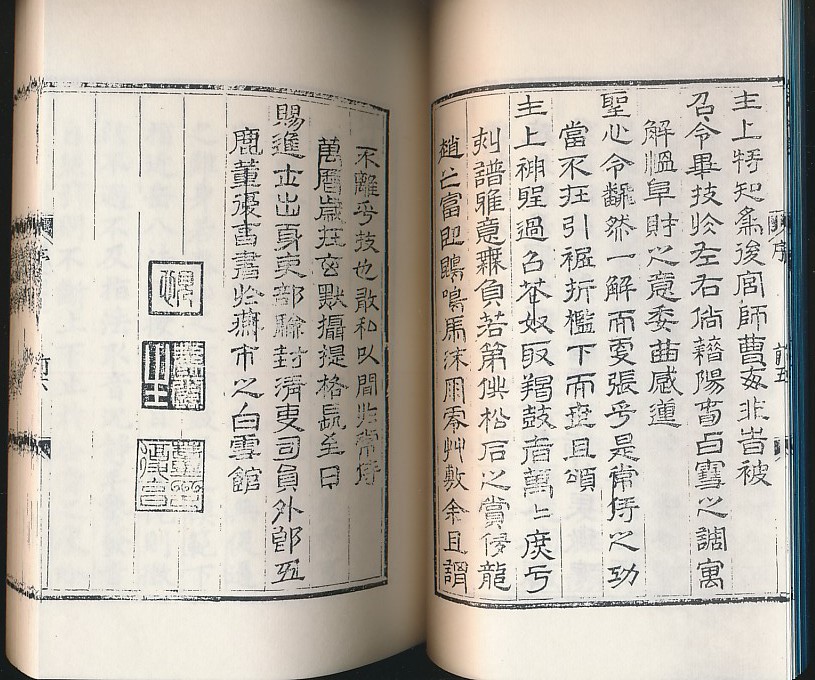 主上特知後宮師曹非昔被
召令畢技於左右倘藉陽春白雪之調寓
解慍阜財之意委曲感
聖心令翻然一解而更張乎是常侍之功
當不在引裾折檻下而且頌
主上神聖過召奴取羯鼓者萬二
刻譜雅意無負若第供松石之賞侈龍
趙之富即鳴馬沫雨零艸敷余且謂
序
前五
不離乎技也敢私以聞於常侍
萬曆歲在玄默攝提格長至日
賜進士出身吏部驗封清吏司員外郎五
鹿董復亨書於燕市之白雪館
序
前六